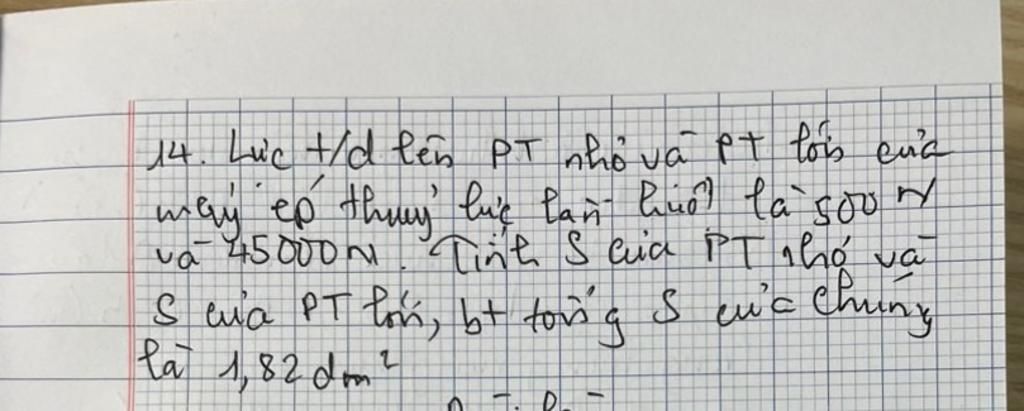 14. Lực t/d lên PT nhỏ và PT lớn của
máy ép thuỷ lực lần lượt là 500 N
và 45000 N. Tính S của PT nhỏ và
S của PT lớn, bt tổng S của chúng
là 1,82 dm²